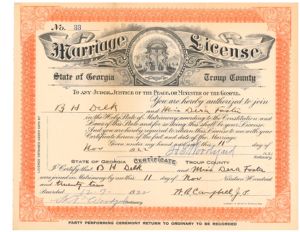 No. 33
Marriage License
State of Georgia Troup County
To any Judge, Justice of the Peace, or Minister of the Gospel.
You are hereby authorized to join
B H Delk and Miss Dera Foster
in the Holy State of Matrimony according to the Constitution and
Laws of this State and for so doing this shall be your License.
And you are hereby required to return this License to me with your
Certificate hereon of the fact and date of the Marriage.
Given under my hand and seal this 11 day of
Nov 1922
STATE OF GEORGIA Certificate TROUP COUNTY
I Certify that B H Delk and Miss Dera Foster
were joined in Matrimony by me this 11 day of Nov Nineteen Hundred
and Twenty two
Recorded 1922 W.A. Campbell J.P.
PARTY PERFORMING CEREMONY RETURN TO ORDINARY TO BE RECORDED